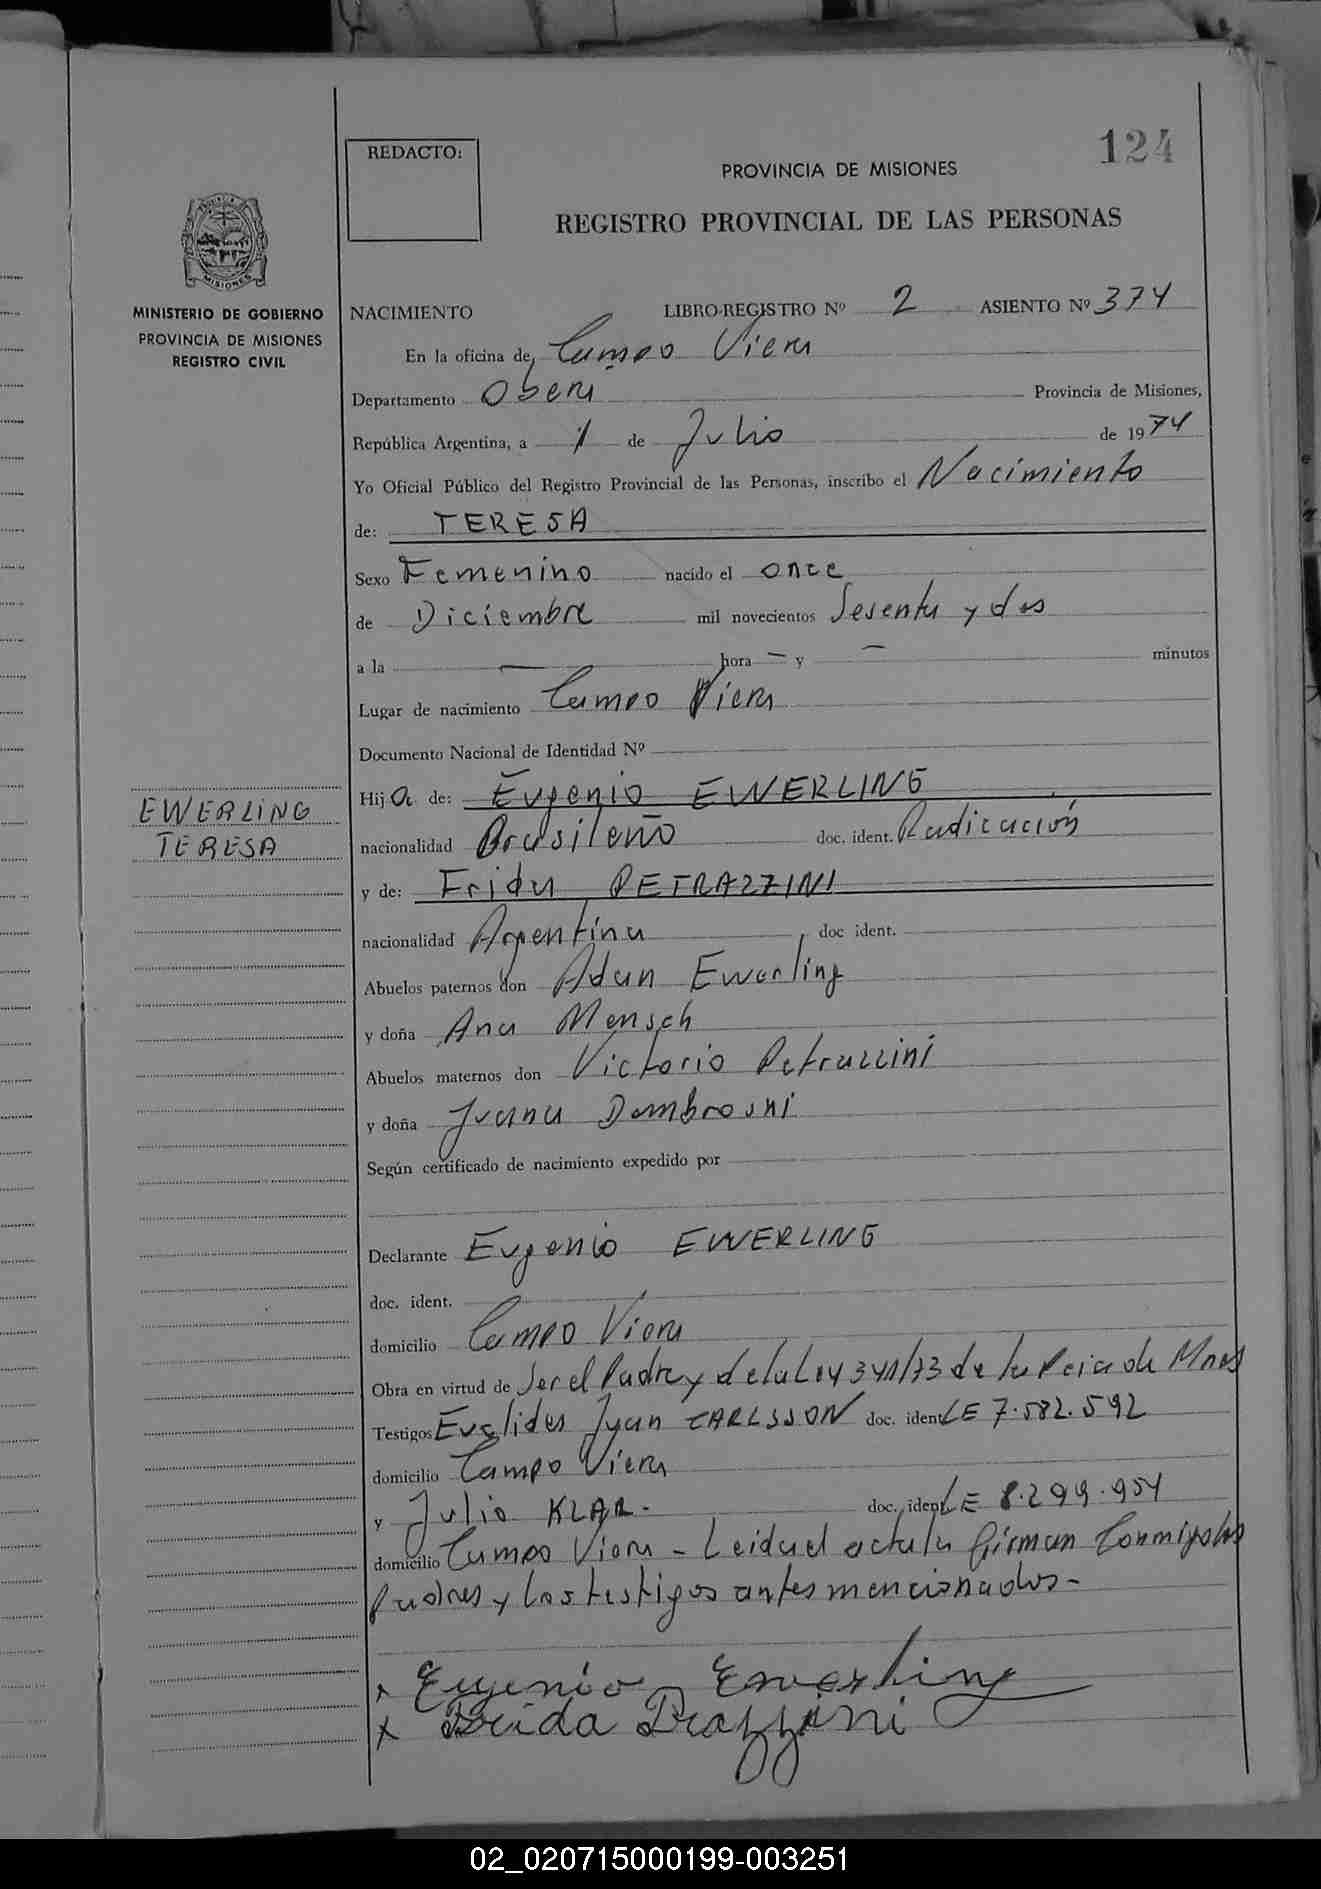 124
REDACTO:
PROVINCIA DE MISIONES
REGISTRO PROVINCIAL DE LAS PERSONAS
MISIONES
MINISTERIO DE GOBIERNO
PROVINCIA DE MISIONES
REGISTRO CIVIL
NACIMIENTO LIBRO-REGISTRO Nº 2 ASIENTO Nº 374
En la oficina de Campo Viera
Departamento Obera Provincia de Misiones,
República Argentina, a 1 de Julio de 1974
Yo Oficial Público del Registro Provincial de las Personas, inscribo el Nacimiento
de: TERESA
Sexo Femenino nacido el once
de Diciembre mil novecientos Sesenta y dos
a la — hora — y — minutos
Lugar de nacimiento Campo Viera
Documento Nacional de Identidad Nº
EWERLING
TERESA
Hija de: Eugenio EWERLING
nacionalidad Brasileño doc. ident. Radicación
y de: Frida PETRAZZINI
nacionalidad Argentina doc ident.
Abuelos paternos don Adan Ewerling
y doña Ana Mensch
Abuelos maternos don Victorio Petrazzini
y doña Juana Dombroski
Según certificado de nacimiento expedido por
Declarante Eugenio EWERLING
doc. ident.
domicilio Campo Viera
Obra en virtud de Ser el Padre y de la Ley 341/73 de la Pcia de Mnes
Testigos Euclides Juan CARLSSON doc. ident LE 7.582.592
domicilio Campo Viera
y Julio KLAR.- doc. ident LE 8.299.954
domicilio Campo Viera - Leida el acta la firman Conmigo los
Padres y los testigos antes mencionados-
x Eugenio Ewerling
x Frida Prazzini
02_020715000199-003251